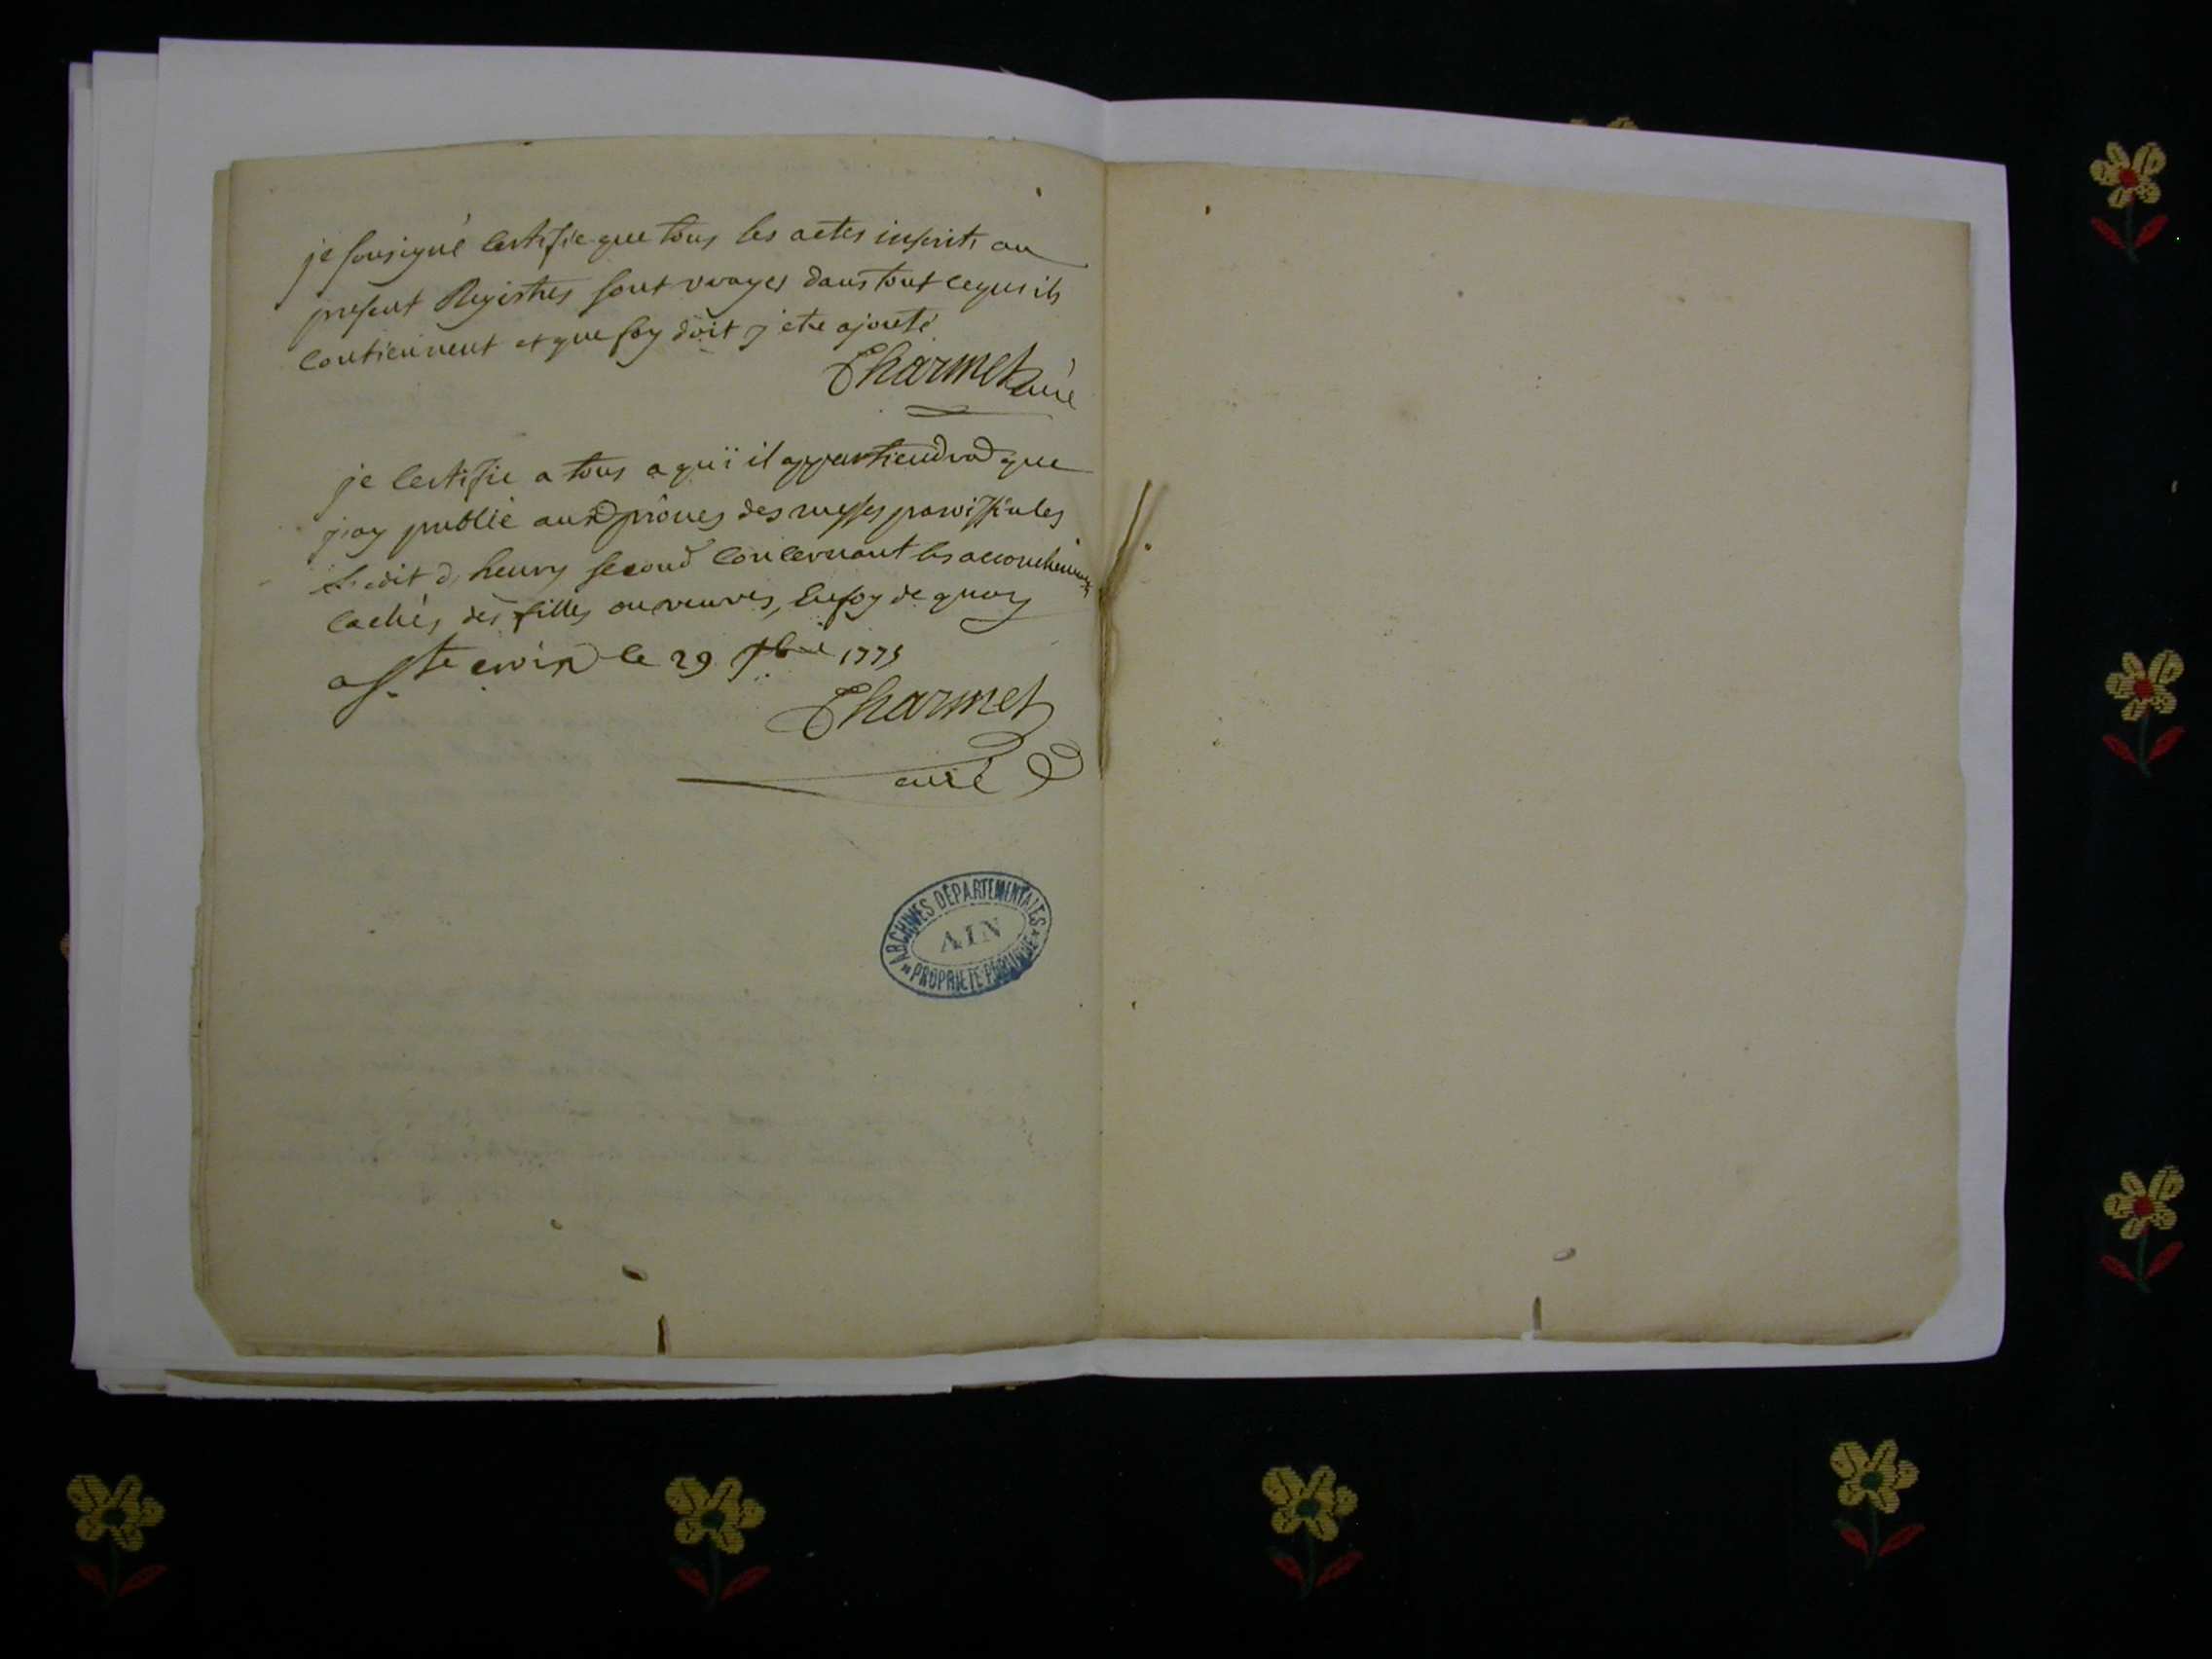 je sousigné certifie que tous les actes inscrits au
present Registres sont vrayes dans tout ce qu'ils
contiennent et que foy doit y etre ajouté
Charmet curé
je certifie a tous a qui il appartiendra que
j'ay publié aux prônes des messes paroissiales
edit d'henry second concernant les accouchemens
cachés des filles ou veuves, en foy de quoy
a Ste croix le 29 1775
Charmet
curé
ARCHIVES DÉPARTEMENTALES
AIN
PROPRIETE PUBLIQUE